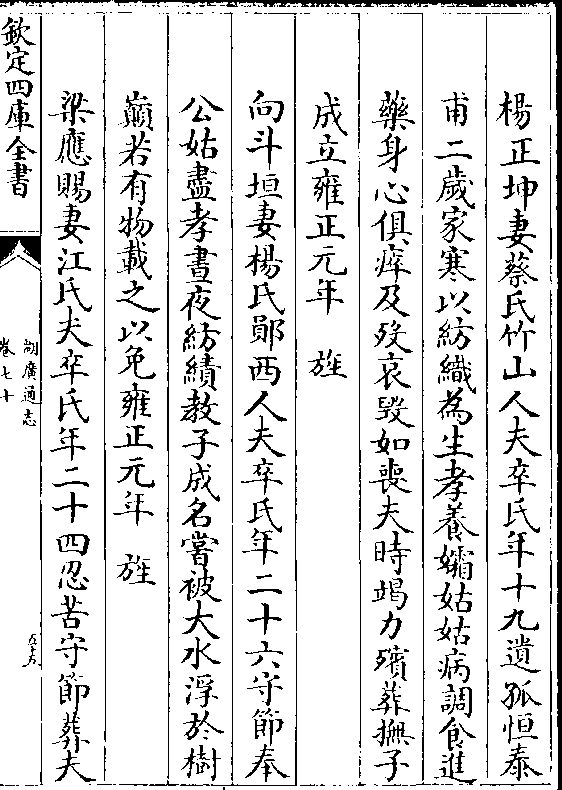 楊正坤妻蔡氏竹山人夫卒氏年十九遺孤恒泰
甫二歲家寒以紡織為生孝養孀姑姑病調食進
藥身心俱瘁及歿哀毀如喪夫時竭力殯葬撫子
成立雍正元年 旌
向斗垣妻楊氏鄖西人夫卒氏年二十六守節奉
公姑盡孝晝夜紡績教子成名嘗被大水浮於樹
巔若有物載之以免雍正元年 旌
梁應賜妻江氏夫卒氏年二十四忍苦守節葬夫
欽定四庫全書
湖廣通志
卷七十
五十五